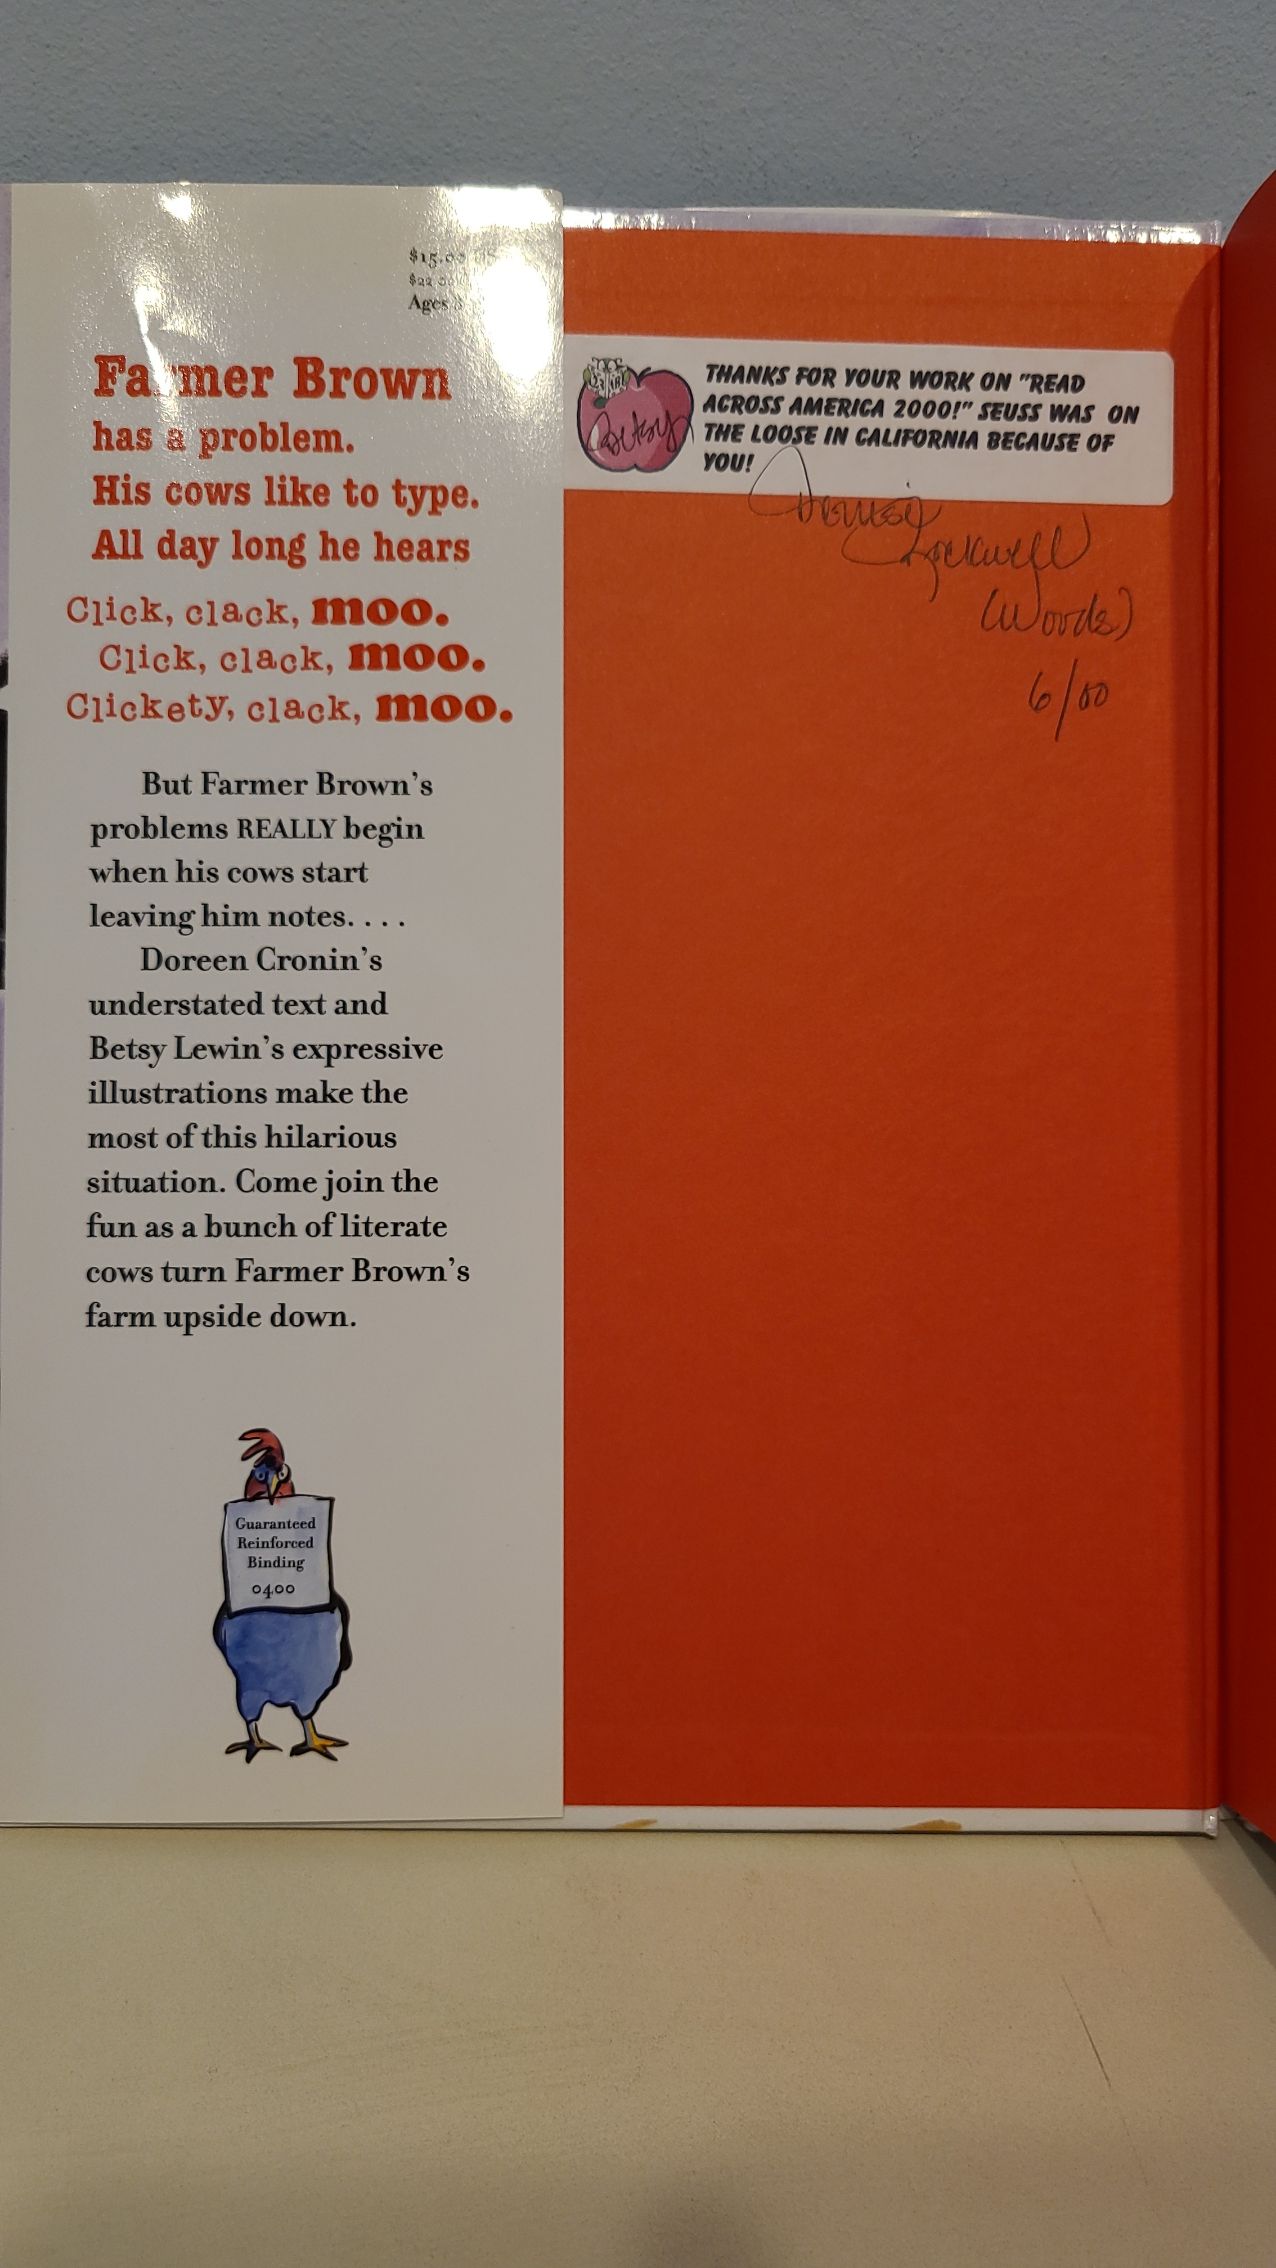 $15.00 US
$22.00
Ages 3
Farmer Brown
has a problem.
His cows like to type.
All day long he hears
Click, clack, moo.
Click, clack, moo.
Clickety, clack, moo.
But Farmer Brown's
problems REALLY begin
when his cows start
leaving him notes. . . .
Doreen Cronin's
understated text and
Betsy Lewin's expressive
illustrations make the
most of this hilarious
situation. Come join the
fun as a bunch of literate
cows turn Farmer Brown's
farm upside down.
Guaranteed
Reinforced
Binding
0400
Betsy
THANKS FOR YOUR WORK ON "READ
ACROSS AMERICA 2000!" SEUSS WAS ON
THE LOOSE IN CALIFORNIA BECAUSE OF
YOU!
Denise
Rockwell
(Woods)
6/00